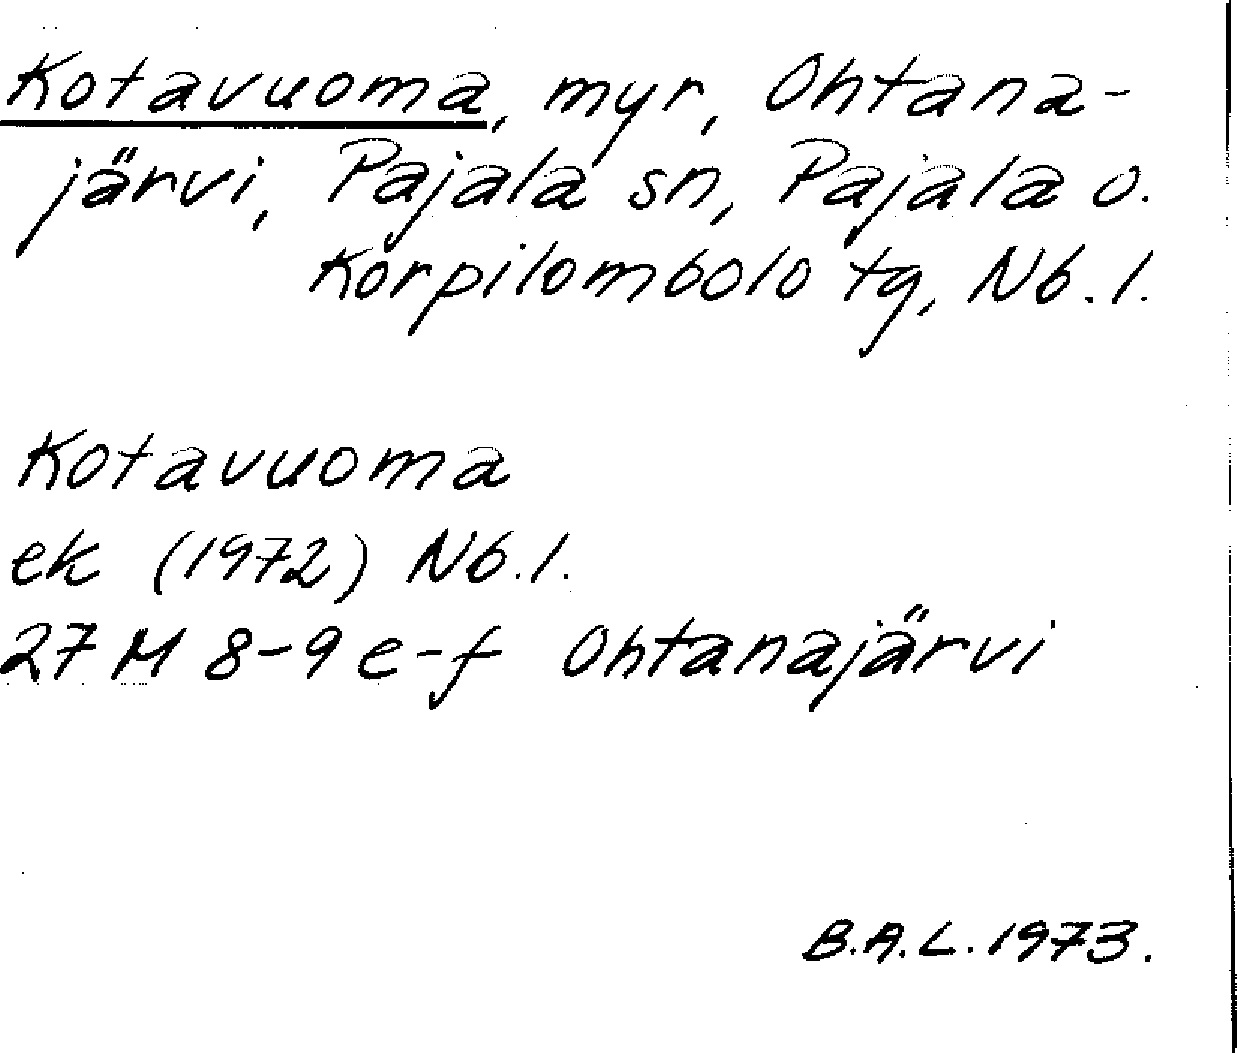 Kotavuoma, myr, Ohtana-
järvi, Pajala sn, Pajala o.
Korpilombolo tg, Nb. l.
Kotavuoma
ek (1972) Nb. l.
27 M 8-9 e-f Ohtanajärvi
B.A.L. 1973.